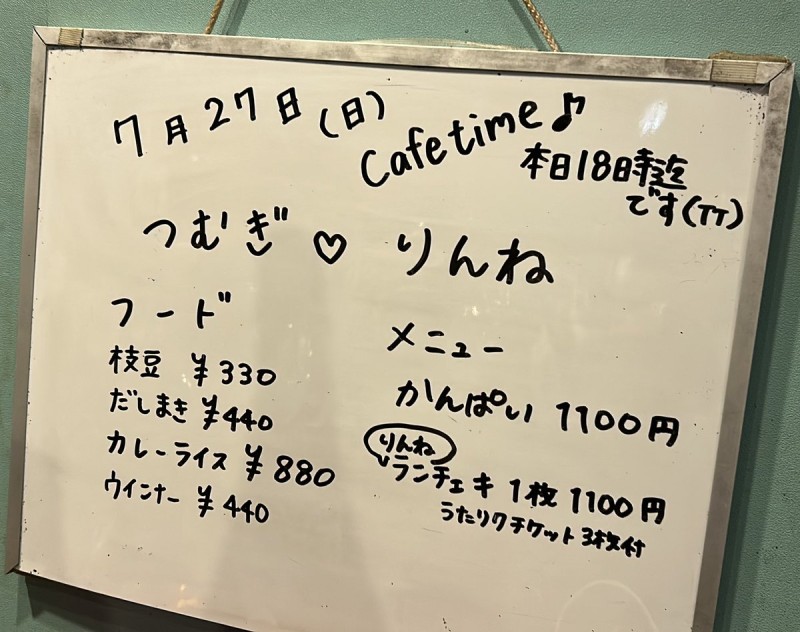 7月27日(日)
Cafetime♪
本日18時迄
です(TT)
つむぎ♡りんね
フード
枝豆 ¥330
だしまき ¥440
カレーライス ¥880
ウインナー ¥440
メニュー
かんぱい 1100円
りんね
ランチェキ 1枚 1100円
うたりクチケット3枚付